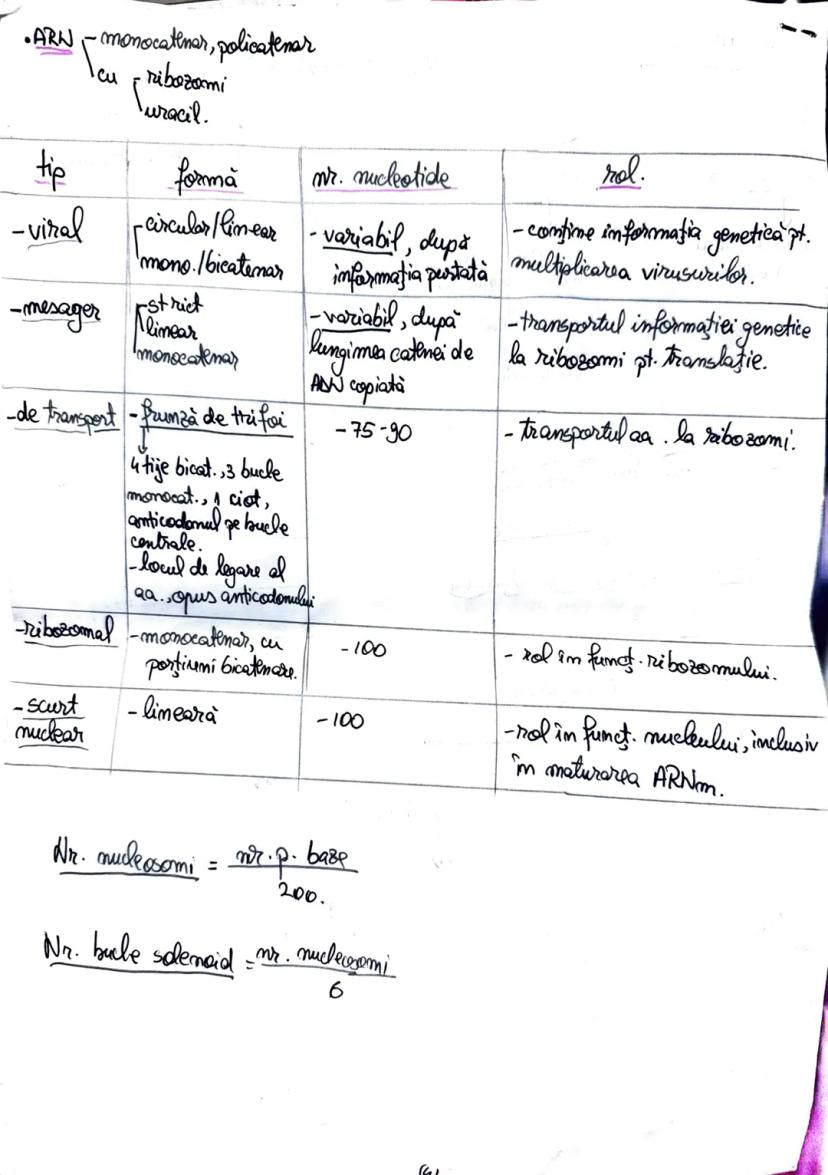 • ARN - monocatenar, policatenar
cu - ribozomi
uracil.
tip formă nr. nucleotide rol.
-viral
- circular/linear
mono./bicatenar
- variabil, după
informația purtată
- conține informația genetică pt.
multiplicarea virusurilor.
-mesager
- strict
linear
monocatenar
- variabil, după
lungimea catenei de
ADN copiată
- transportul informației genetice
la ribozomi pt. translație.
-de transport
- frunză de trifoi
4 tije bicat., 3 bucle
monocat., 1 ciot,
anticodonul pe bucle
centrale.
- locul de legare al
aa., opus anticodonului
- 75-90
- transportul aa. la ribozomi.
-ribozomal
- monocatenar, cu
porțiuni bicatenare.
- 100
- rol în funcț. ribozomului.
- scurt
nuclear
- lineară
- 100
- rol în funcț. nucleului, inclusiv
în maturarea ARNm.
Nr. nucleosomi = nr. p. baze
200.
Nr. bucle solenoid = nr. nucleosomi
6